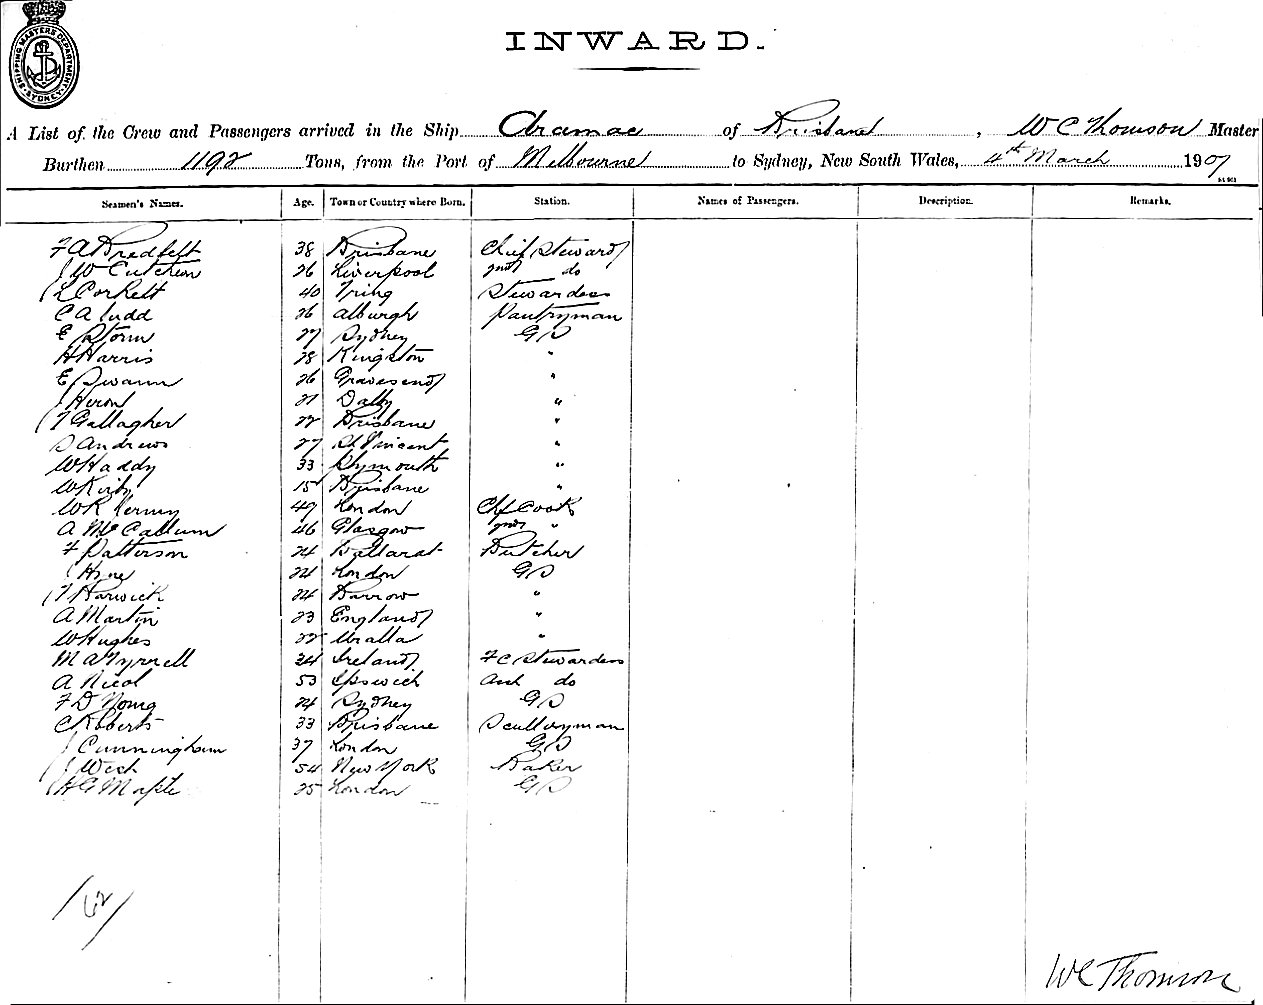 SHIPPING MASTERS DEPARTMENT SYDNEY
INWARD.
A List of the Crew and Passengers arrived in the Ship Aramac of Brisbane, W C Thomson Master
Burthen 1192 Tons, from the Port of Melbourne to Sydney, New South Wales, 4th March 1907
Seamen's Names. Age. Town or Country where Born. Station. Names of Passengers. Description. Remarks.
F A Bredfelt 38 Brisbane Chief Steward
J W Cutcheon 26 Liverpool 2nd do
L Corkett 40 Tring Stewardess
C A Judd 26 Alburgh Pantryman
E Storm 27 Sydney GS
H Harris 28 Kingston "
E Swann 26 Gravesend "
J Heron 21 Dalby "
T Gallagher 22 Brisbane "
S Andrews 27 St Vincent "
W Haddy 33 Plymouth "
W Kirby 15 Brisbane "
W R 49 London Chf Cook
A McCallum 46 Glasgow 2nd "
F Patterson 24 Ballarat Butcher
24 London GS
T Harwick 24 Barrow "
A Martin 23 England "
W Hughes 22 Uralla "
M A Tyrrell 34 Ireland F C Stewardess
A Nicol 53 Ipswich Asst do
F D Young 24 Sydney GS
C Roberts 33 Brisbane Scullyman
J Cunningham 37 London GS
J West 54 New York Baker
H G Maple 25 London GS
W C Thomson